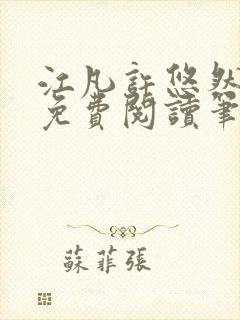 江凡許悠然
免費閱讀筆
蘇菲張